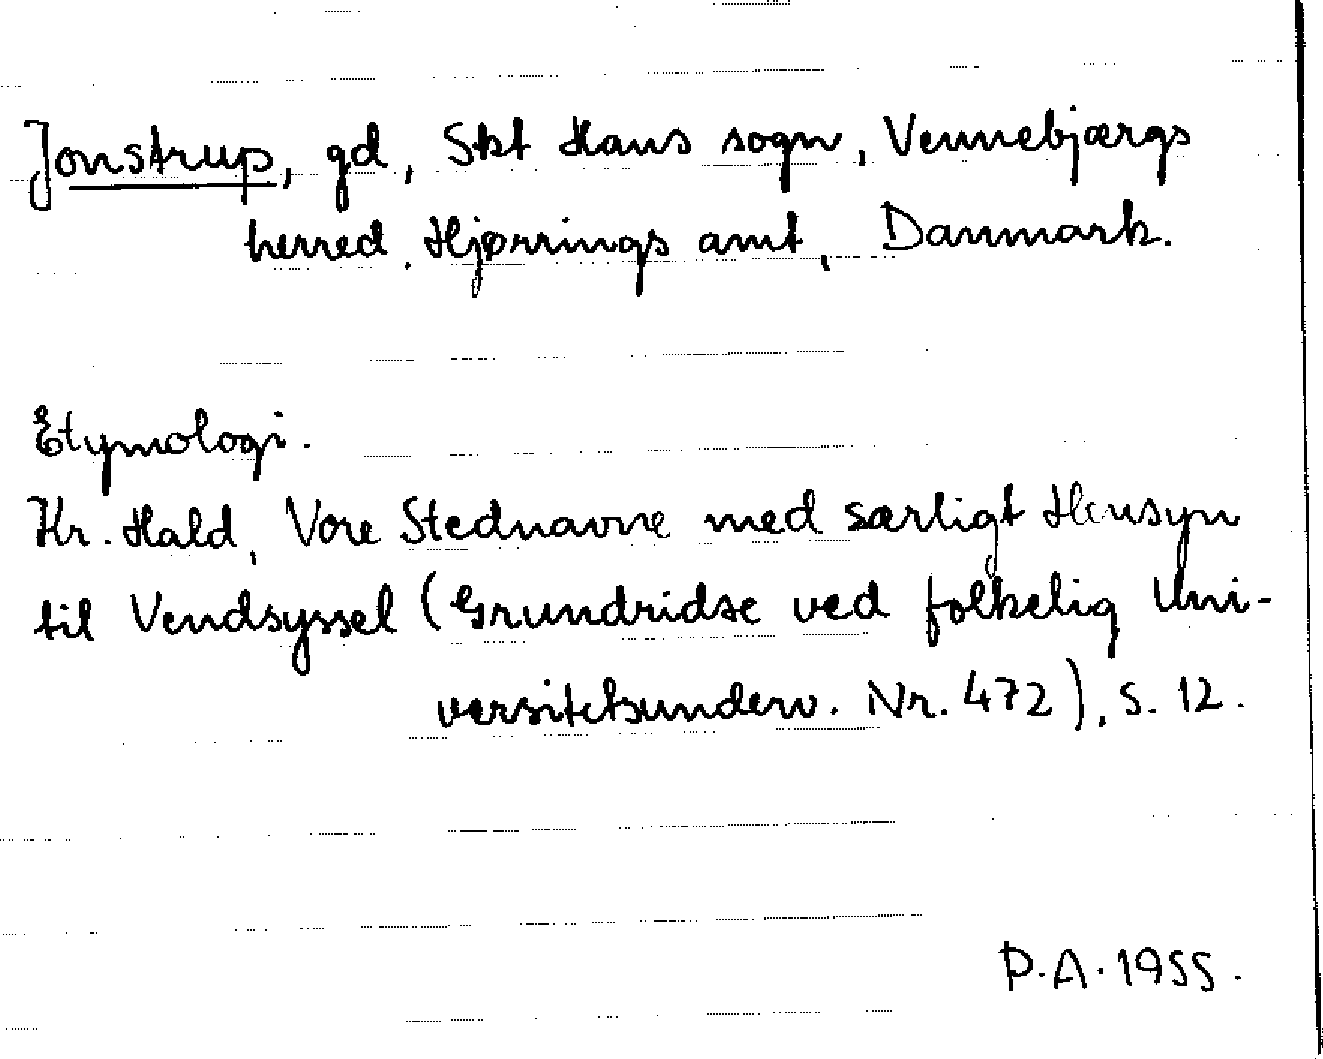 Jonstrup, gd, Skt Hans sogn, Vennebjærgs
herred, Hjørrings amt, Danmark.
Etymologi.
Kr. Hald, Vore Stednavne med særligt Hensyn
til Vendsyssel (Grundridse ved folkelig Uni-
versitetsunderv. Nr. 472), s. 12.
P.A. 1955.